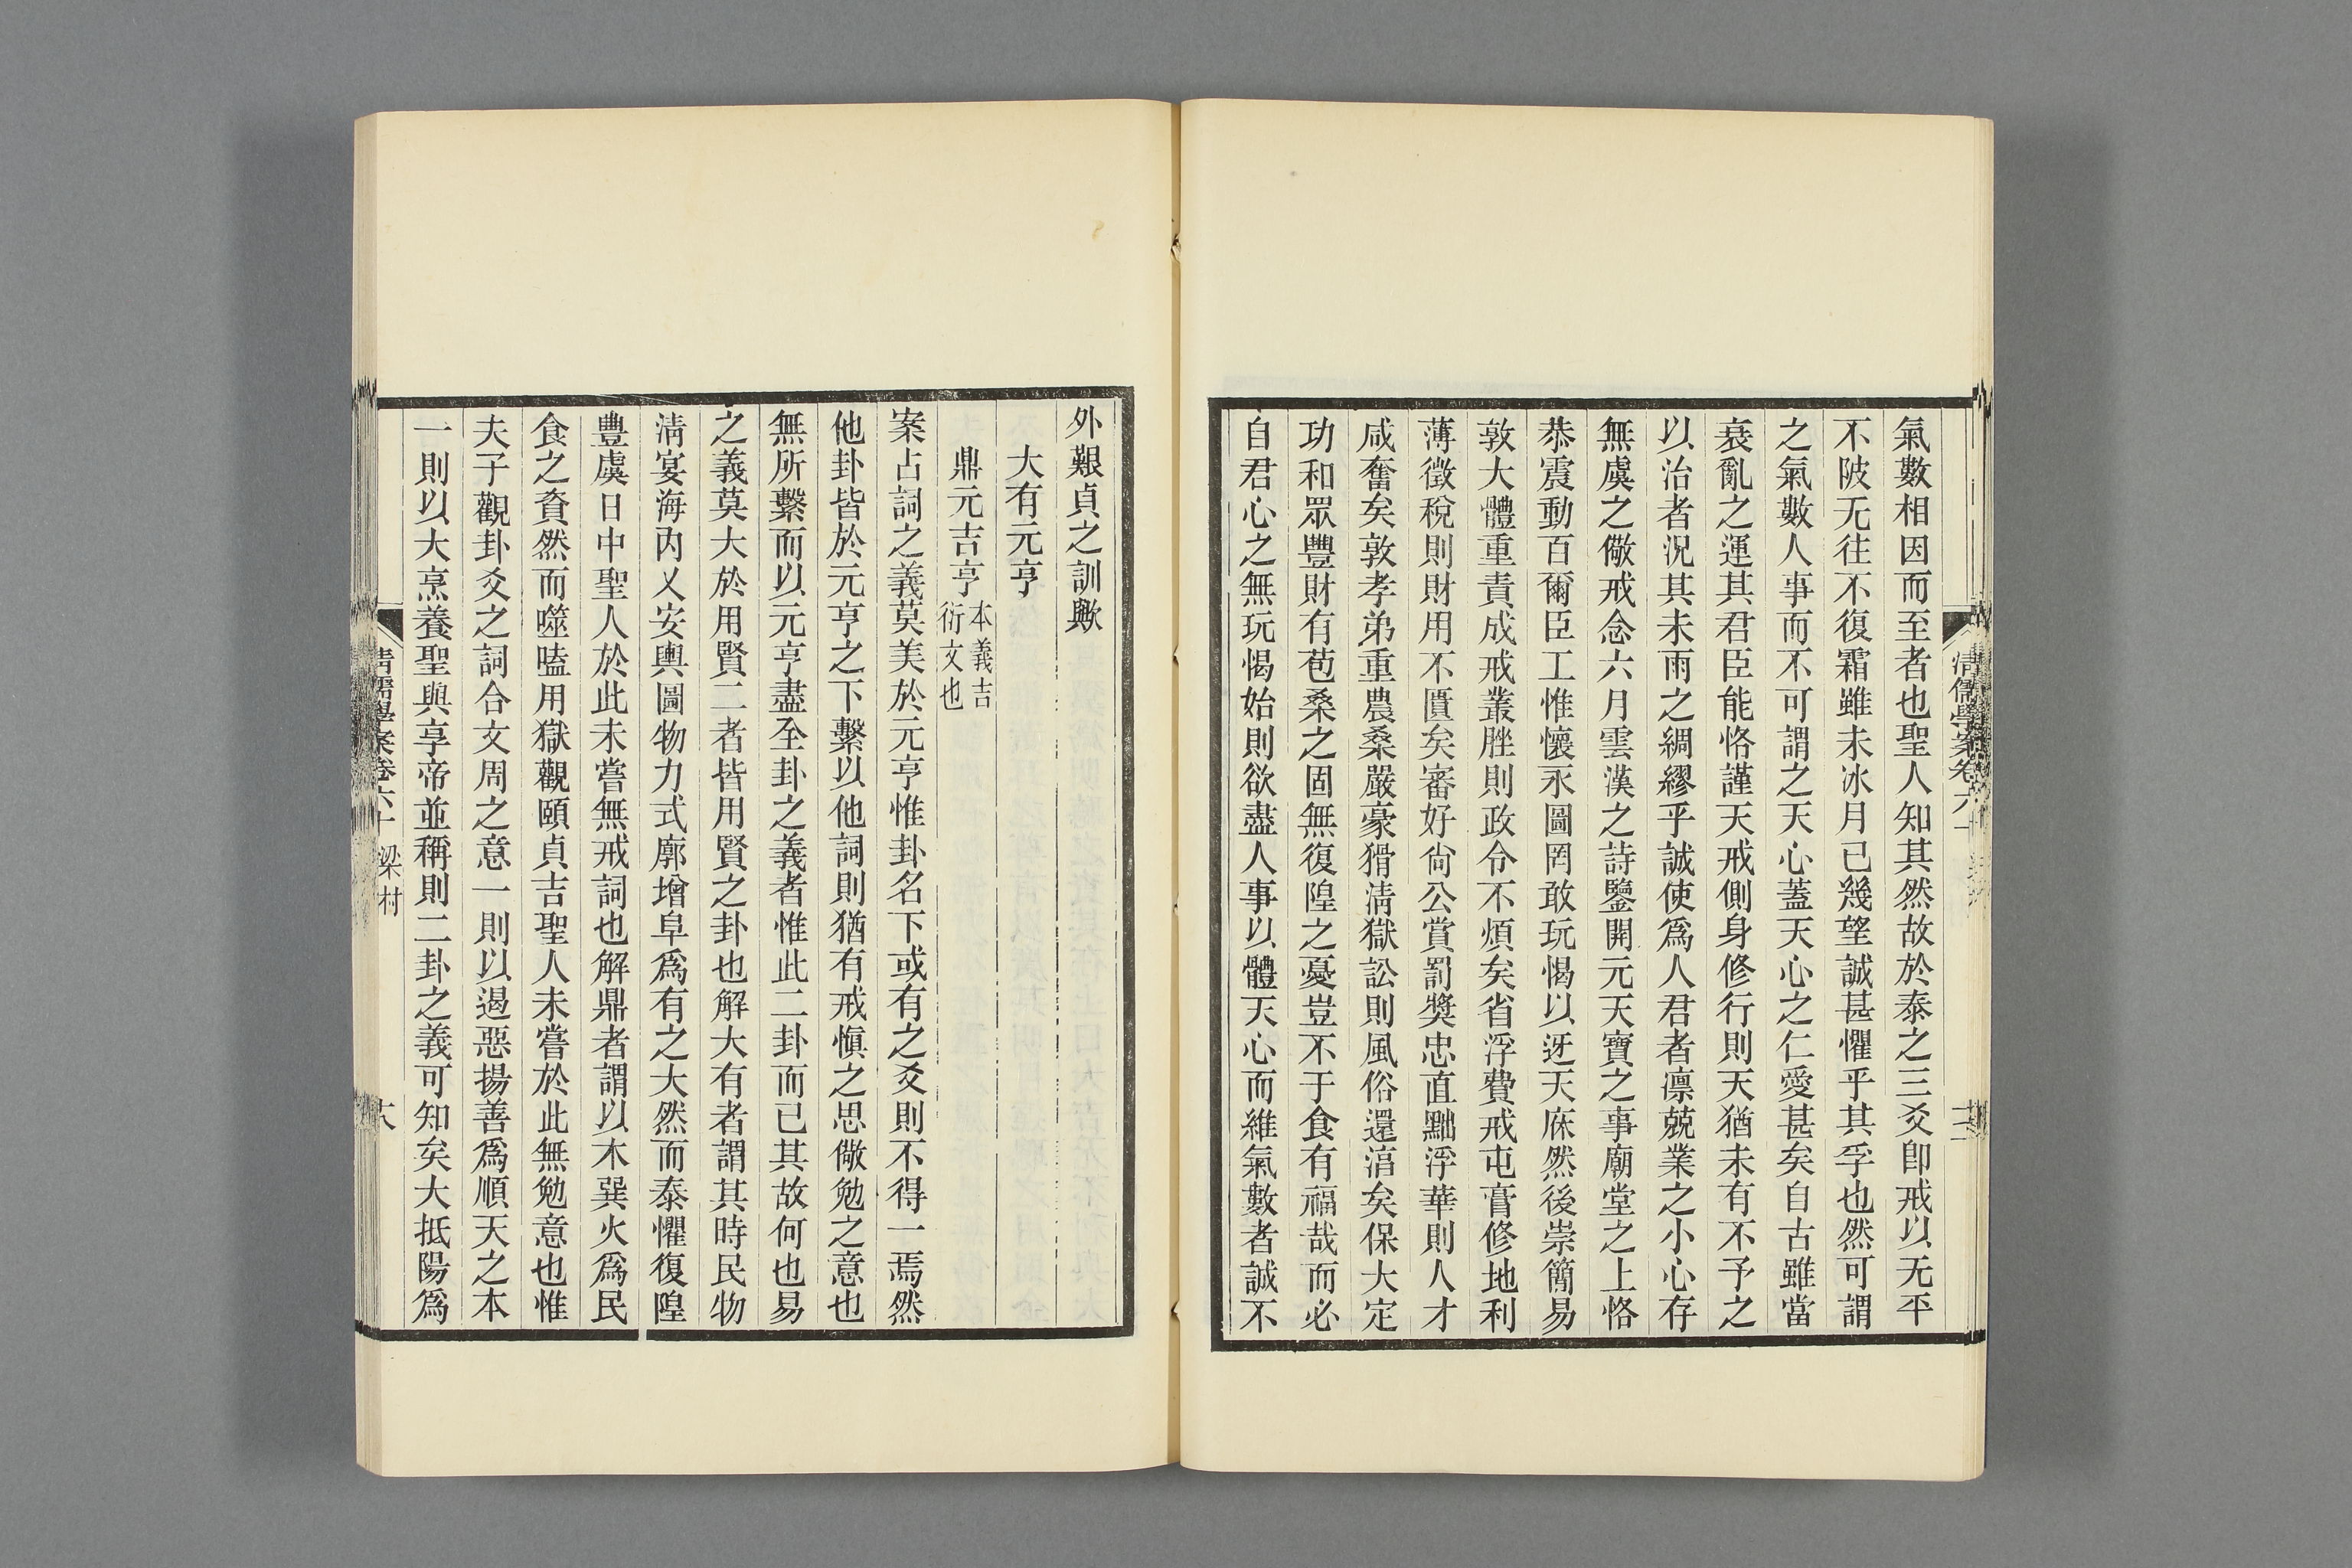 氣數相因而至者也聖人知其然故於泰之三爻卽戒以无平
不陂无往不復霜雖未冰月已幾望誠甚懼乎其孚也然可謂
之氣數人事而不可謂之天心蓋天心之仁愛甚矣自古雖當
衰亂之運其君臣能恪謹天戒側身修行則天猶未有不予之
以治者況其未雨之綢繆乎誠使爲人君者凛兢業之小心存
無虞之儆戒念六月雲漢之詩鑒開元天寶之事廟堂之上恪
恭震動百爾臣工惟懷永圖罔敢玩愒以迓天庥然後崇簡易
敦大體重責成戒叢脞則政令不煩矣省浮費戒屯膏修地利
薄徵稅則財用不匱矣審好尙公賞罰獎忠直黜浮華則人才
咸奮矣敦孝弟重農桑嚴豪猾淸獄訟則風俗還淳矣保大定
功和眾豐財有苞桑之固無復隍之憂豈不于食有福哉而必
自君心之無玩愒始則欲盡人事以體天心而維氣數者誠不
外艱貞之訓歟
大有元亨
鼎元吉亨本義吉
衍文也
案占詞之義莫美於元亨惟卦名下或有之爻則不得一焉然
他卦皆於元亨之下繫以他詞則猶有戒愼之思儆勉之意也
無所繫而以元亨盡全卦之義者惟此二卦而已其故何也易
之義莫大於用賢二者皆用賢之卦也解大有者謂其時民物
淸宴海內乂安輿圖物力式廓增阜爲有之大然而泰懼復隍
豐虞日中聖人於此未嘗無戒詞也解鼎者謂以木巽火爲民
食之資然而噬嗑用獄觀頤貞吉聖人未嘗於此無勉意也惟
夫子觀卦爻之詞合文周之意一則以遏惡揚善爲順天之本
一則以大烹養聖與享帝並稱則二卦之義可知矣大抵陽爲
清儒學案卷六十 梁村